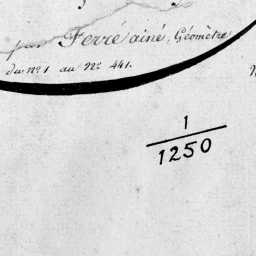 par Ferré ainé, Géomètre
du nº 1 au Nº 441.
1
1250